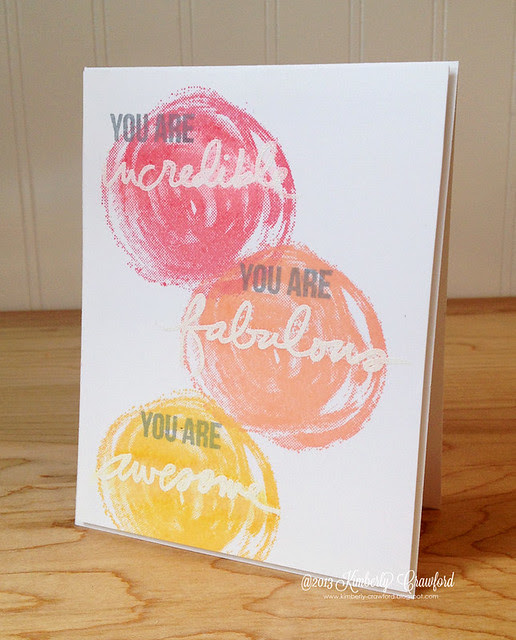 YOU ARE
incredible
YOU ARE
fabulous
YOU ARE
awesome
@2013 Kimberly Crawford
www.kimberly-crawford.blogspot.com